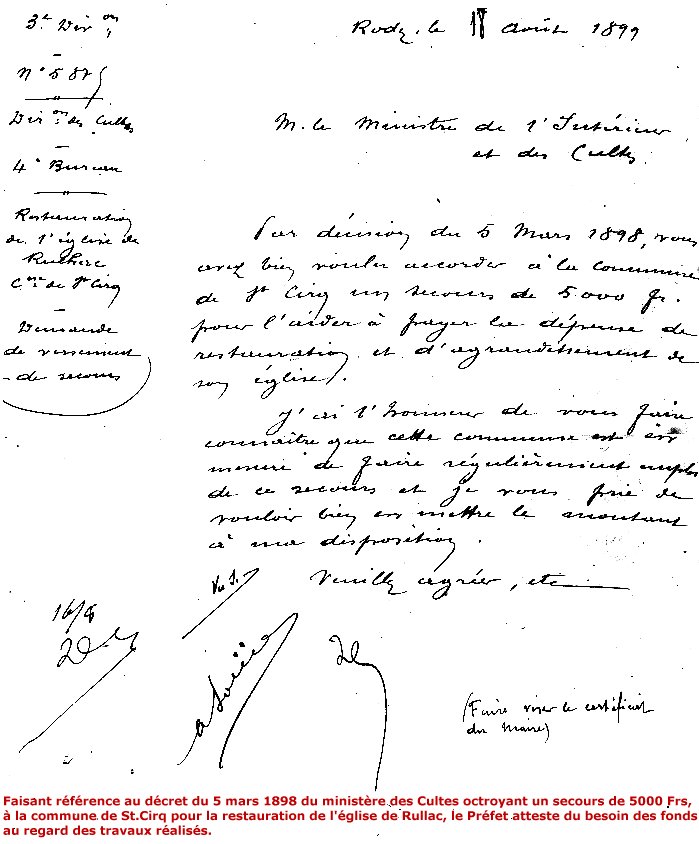 3e Dion
Rodez, le 17 août 1899
N° 587
Dion des Cultes
M. le Ministre de l'Intérieur
et des Cultes
4e Bureau
Restauration
de l'église de
Cne de St Cirq
Demande
de versement
de secours
Par décision du 5 Mars 1898, vous
avez bien voulu accorder à la commune
de St Cirq un secours de 5000 fr.
pour l'aider à payer la dépense de
restauration et d'agrandissement de
son église.
J'ai l'honneur de vous faire
connaître que cette commune est en
mesure de faire régulièrement emploi
de ce secours et je vous prie de
vouloir bien en mettre le montant
à ma disposition.
Veuillez agréer, etc
Vu
16/8
(Faire viser le certificat
du Maire)
Faisant référence au décret du 5 mars 1898 du ministère des Cultes octroyant un secours de 5000 Frs,
à la commune de St.Cirq pour la restauration de l'église de Rullac, le Préfet atteste du besoin des fonds
au regard des travaux réalisés.